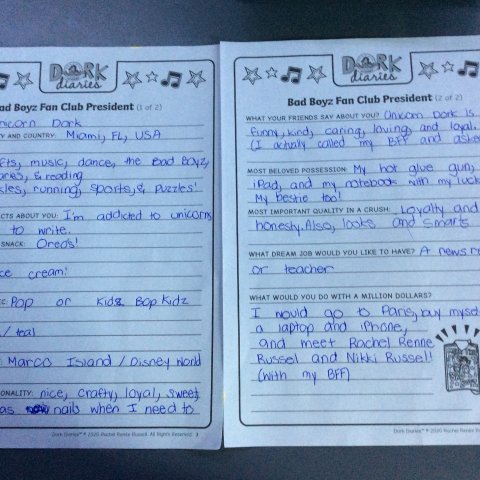 DORK
diaries
ad Boyz Fan Club President (1 of 2)
nicorn Dork
Y AND COUNTRY: Miami, FL, USA
fts, music, dance, the Bad Boyz,
& reading
running, sports, & puzzles!
CTS ABOUT YOU: I'm addicted to unicorns
to write.
SNACK: Oreo's!
ce cream!
Pop or Kidz Bop Kidz
/ teal
Marco Island / Disney world
ONALITY: nice, crafty, loyal, sweet
as nails when I need to
Dork Diaries™ © 2020 Rachel Renée Russell. All Rights Reserved. 3
DORK
diaries
Bad Boyz Fan Club President (2 of 2)
WHAT YOUR FRIENDS SAY ABOUT YOU? Unicorn Dork is
funny, kind, caring, loving, and loyal.
(I actually called my BFF and asked
MOST BELOVED POSSESSION: My hot glue gun,
iPad, and my notebook with my luck
My bestie too!
MOST IMPORTANT QUALITY IN A CRUSH: Loyalty and
honesty. Also, looks and smarts
WHAT DREAM JOB WOULD YOU LIKE TO HAVE? A news re
or teacher
WHAT WOULD YOU DO WITH A MILLION DOLLARS?
I would go to Paris, buy myse
a laptop and iPhone,
and meet Rachel Renne
Russel and Nikki Russel!
(with my BFF)
Dork Diaries™ © 2020 Rachel Renée Russell. All Ri